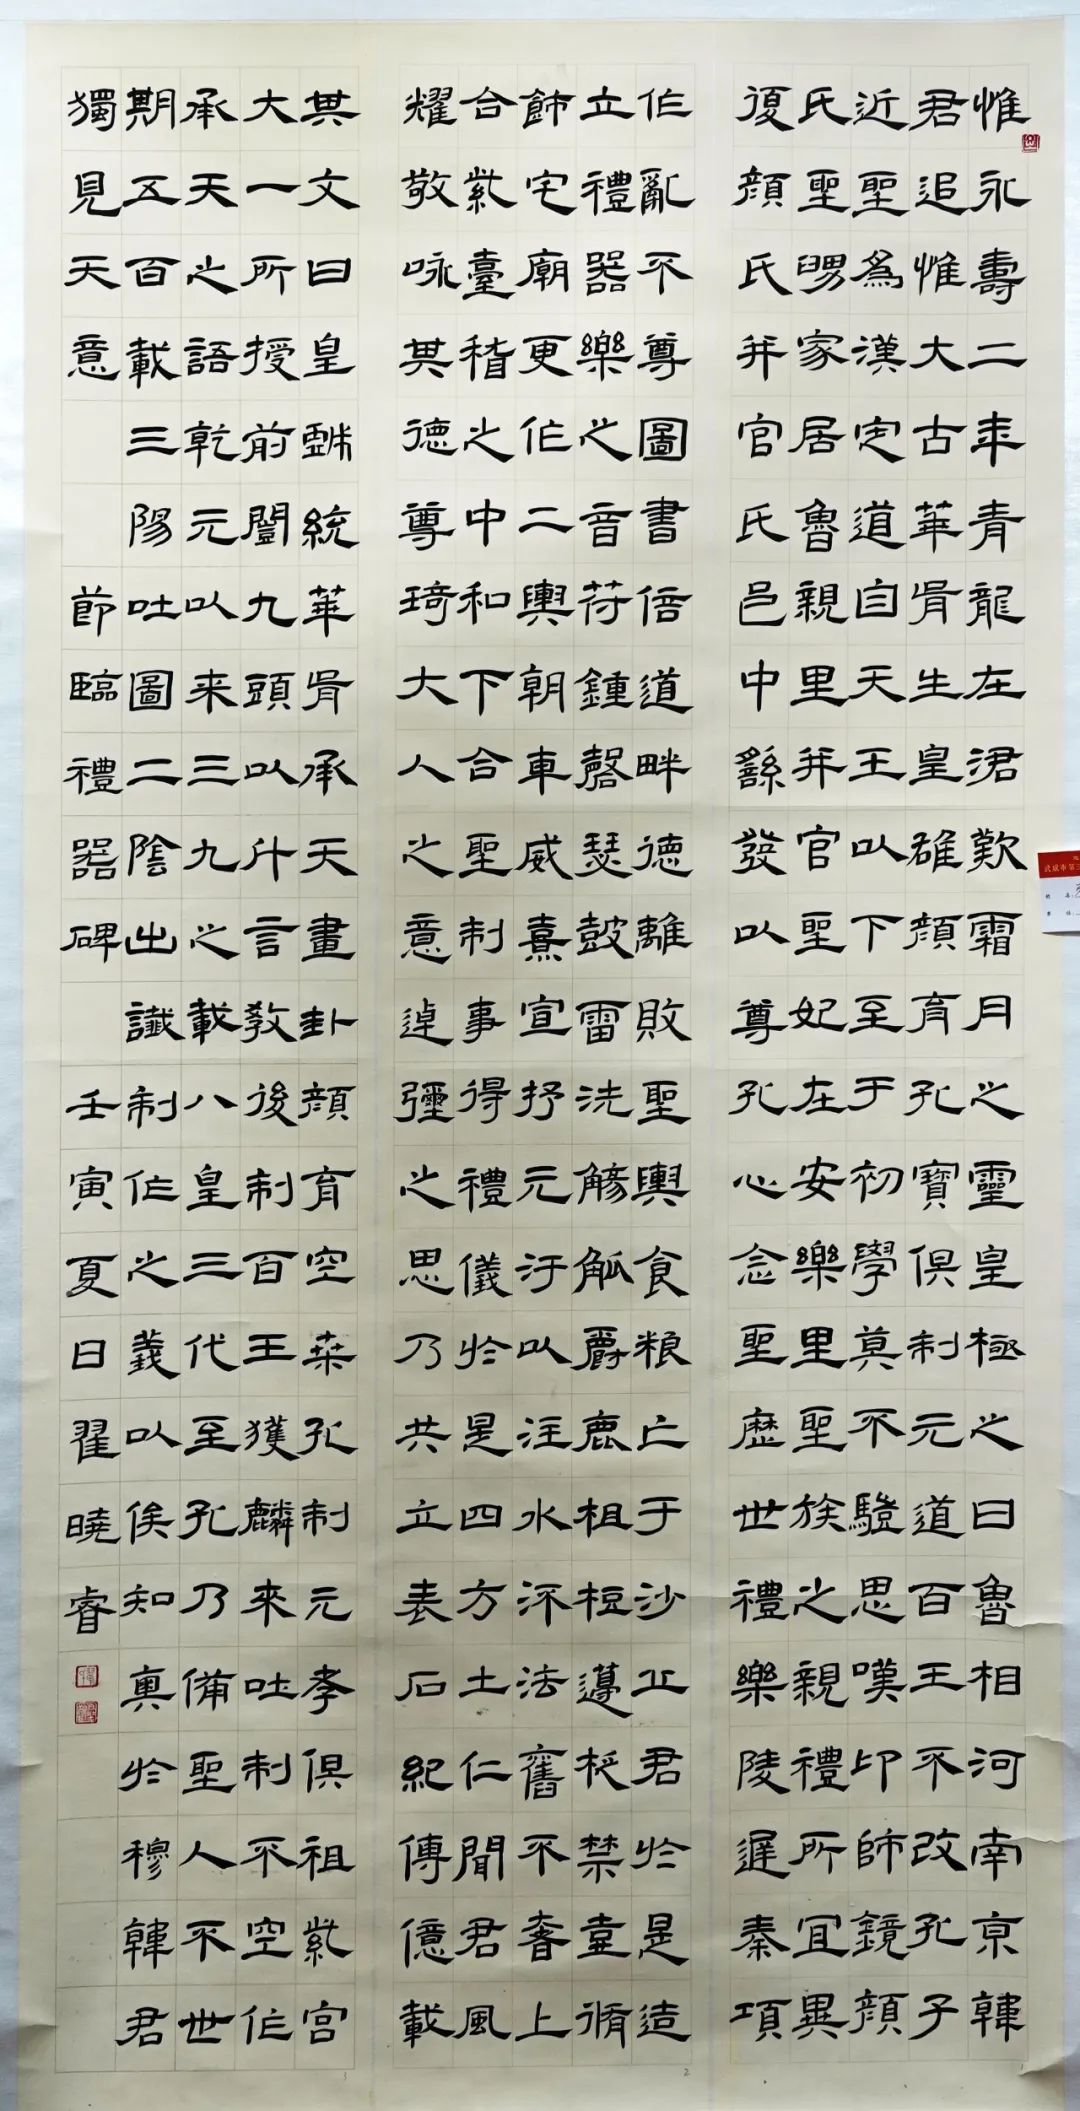 惟永壽二年青龍在涒歎霜月之靈皇極之日魯相河南京韓
君追惟大古華胥生皇雄顏育孔寶俱制元道百王不改孔子
近聖爲漢定道自天王以下至于初學莫不驥思嘆卬師鏡顏
氏聖舅家居魯親里并官聖妃在安樂里聖族之親禮所宜異
復顏氏并官氏邑中繇發以尊孔心念聖歷世禮樂陵遲秦項
作亂不尊圖書倍道畔德離敗聖輿食粮亡于沙丘君於是造
立禮器樂之音符鍾磬瑟鼓雷洗觴觚爵鹿柤梪籩柉禁壺脩
飾宅廟更作二輿朝車威熹宣抒元汙以注水流法舊不奢上
合紫臺稽之中和下合聖制事得禮儀於是四方土仁聞君風
耀敬咏其德尊琦大人之意逴彌之思乃共立表石紀傳億載
其文曰皇戲統華胥承天畫卦顏育空桑孔制元孝俱祖紫宮
大一所授前闓九頭以什言教後制百王獲麟來吐制不空作
承天之語乾元以来三九之載八皇三代至孔乃備聖人不世
期五百載三陽吐圖二陰出讖制作之義以俟知奧於穆韓君
獨見天意 節臨禮器碑 壬寅夏日翟曉睿